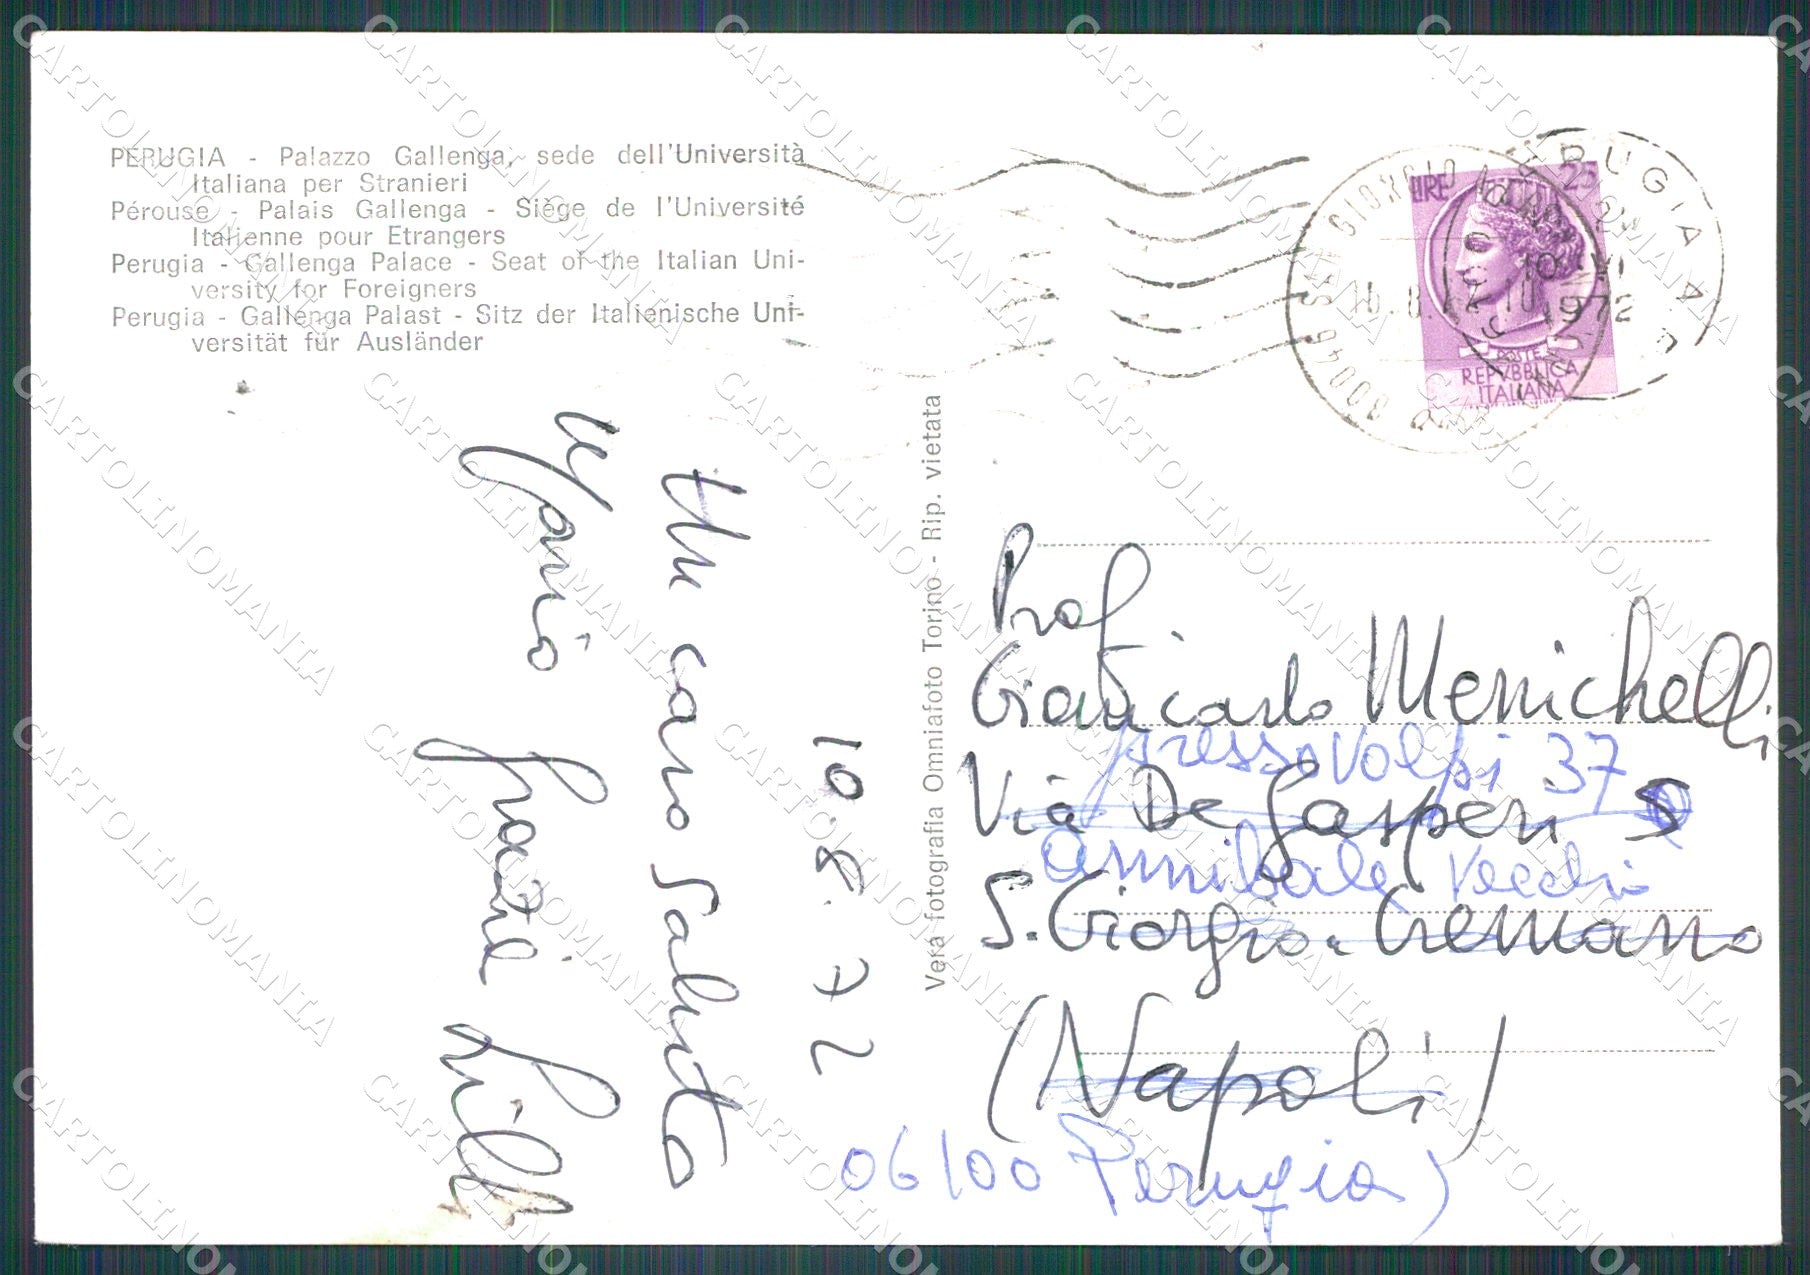 PERUGIA - Palazzo Gallenga, sede dell'Università
Italiana per Stranieri
Pérouse - Palais Gallenga - Siège de l'Université
Italienne pour Etrangers
Perugia - Gallenga Palace - Seat of the Italian Uni-
versity for Foreigners
Perugia - Gallenga Palast - Sitz der Italienische Uni-
versität für Ausländer
10.8.72
Un caro saluto
Vera fotografia Omniafoto Torino - Rip. vietata
LIRE 25
POSTE
REPVBBLICA
ITALIANA
PERUGIA
1972
80046 S. GIORGIO A
Prof
Giancarlo Menichelli
presso Volpi 37
Via De Gasperi 5
Annibale Vecchi
S. Giorgio a Cremano
(Napoli)
06100 Perugia)
CARTOLINOMANIA